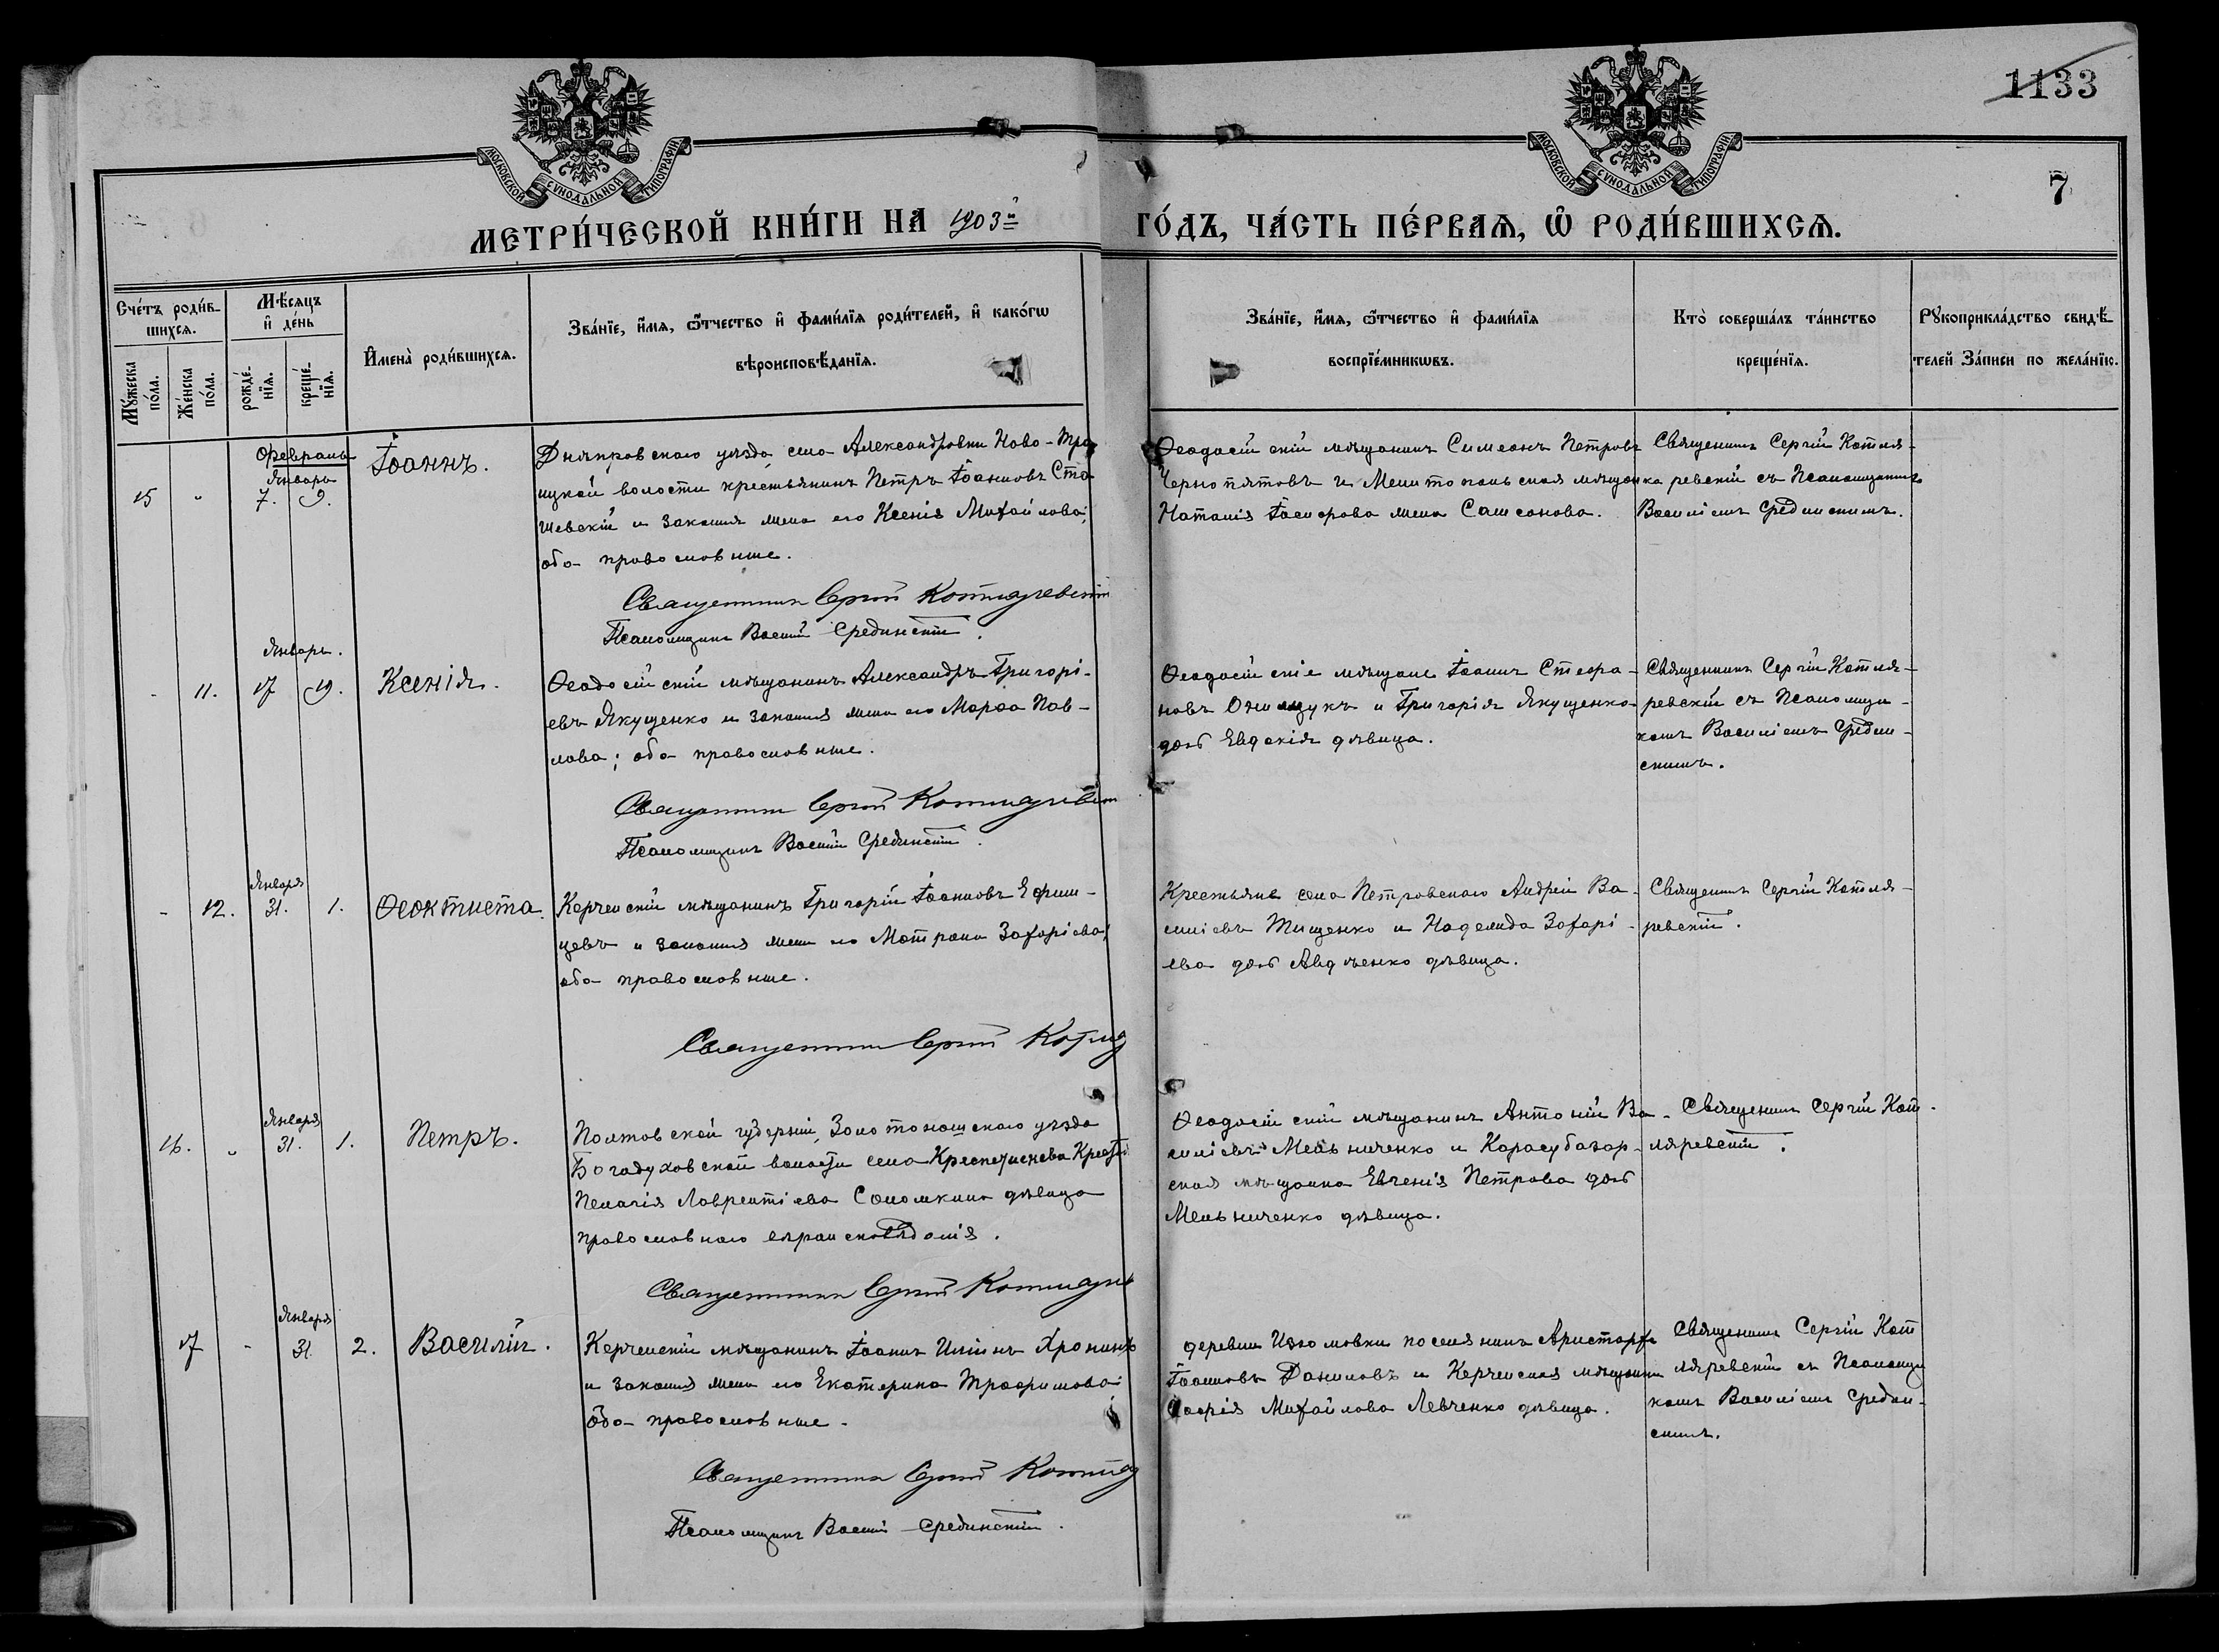 1133
7
МОСКОВСКОЙ СѴНОДАЛЬНОЙ ТИПОГРАФІИ
МОСКОВСКОЙ СѴНОДАЛЬНОЙ ТИПОГРАФІИ
МЕТРИ́ЧЕСКОЙ КНИ́ГИ НА 1903й ГО́ДЪ, ЧА́СТЬ ПЕ́РВАѦ, Ѡ҆ РОДИ́ВШИХСѦ.
Сче́тъ роди́в-
шихсѧ.
Мꙋ́жеска по́ла.
Же́нска по́ла.
Мѣ́сѧцъ и҆ де́нь
рожде́-
нїѧ.
креще́-
нїѧ.
И҆мена̀ роди́вшихсѧ.
Зва́нїе, и҆́мѧ, ѻ҆́тчество и҆ фами́лїѧ роди́телей, и҆ како́гѡ
вѣроисповѣ́данїѧ.
Зва́нїе, и҆́мѧ, ѻ҆́тчество и҆ фами́лїѧ
воспрїе́мникѡвъ.
Кто̀ соверша́лъ та́инство
креще́нїѧ.
Рꙋкоприкла́дство свидѣ́-
телей За́писи по жела́нїю.
Февраль
Январь
15 " 7. 9. Іоаннъ.
Днѣпровскаго уѣзда, села Александровки Ново-Тро
ицкой волости крестьянинъ Петръ Іоанновъ Ста
шевскій и законная жена его Ксенія Михайлова;
оба православные.
Священникъ Сергій Котляревскій
Псаломщикъ Василій Срединскій.
Ѳеодосійскій мѣщанинъ Симеонъ Петровъ
Чернопятовъ и Мелитопольская мѣщанка
Наталія жена Самсонова.
Священникъ Сергій Котля-
ревскій съ Псаломщикомъ
Василіемъ Срединскимъ.
Январь.
- 11. 17 19. Ксенія.
Ѳеодосійскій мѣщанинъ Александръ Григорі-
евъ Якущенко и законная жена его Марѳа Пав-
лова; оба православные.
Священникъ Сергій Котляревскій
Псаломщикъ Василій Срединскій.
Ѳеодосійскіе мѣщане Іоаннъ Стефа-
новъ Онищукъ и Григорія Якущенко
дочь Евдокія дѣвица.
Священникъ Сергій Котля-
ревскій съ Псаломщи-
комъ Василіемъ Средин-
скимъ.
Января
- 12. 31. 1. Ѳеоктиста.
Керченскій мѣщанинъ Григорій Іоанновъ Ефим-
цевъ и законная жена его Матрона Захаріева;
оба православные.
Священникъ Сергій Котля
Крестьяне села Петровскаго Андрей Ва-
силіевъ Тищенко и Надежда Захарі-
ева дочь Авдѣенко дѣвица.
Священникъ Сергій Котля-
ревскій.
Января
16. " 31. 1. Петръ.
Полтовской губерніи, Золотоношскаго уѣзда
Богодуховской волости села
Пелагія Лаврентіева Соломкина дѣвица
православнаго вѣроисповѣданія.
Священникъ Сергій Котляре
Ѳеодосійскій мѣщанинъ Антоній Ва-
силіевъ Мельниченко и Карасубазар-
ская мѣщанка Евгенія Петрова дочь
Мельниченко дѣвица.
Священникъ Сергій Кот-
ляревскій.
Января
17 - 31. 2. Василій.
Керченскій мѣщанинъ Іоаннъ Иліинъ Хронинъ
и законная жена его Екатерина Трофимова;
оба православные.
Священникъ Сергій Котля
Псаломщикъ Василій Срединскій.
деревни Изюмовки поселянинъ Аристархъ
Іоанновъ Даниловъ и Керченская мѣщанка
Михайлова Левченко дѣвица.
Священникъ Сергій Кот
ляревскій съ Псаломщи
комъ Василіемъ Средин-
скимъ.